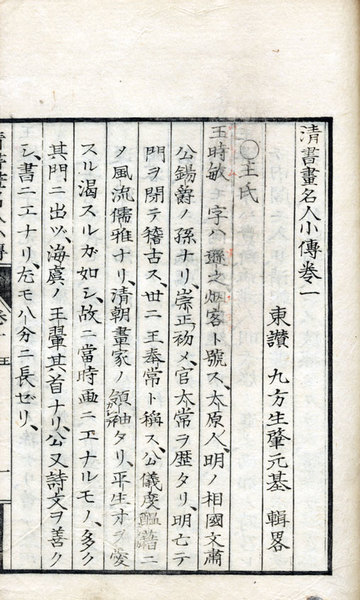 清書畫名人小傳卷一
東讃 九方生肇元基 輯畧
○王氏
王時敏、字ハ遜之烟客ト號ス、太原人、明ノ相國文肅
公錫爵ノ孫ナリ、崇正初メ、官太常ヲ歴タリ、明亡テ
門ヲ閉テ稽古ス、世ニ王奉常ト稱ス、公儀度醞藉ニ
ノ風流儒雅ナリ、清朝畫家ノ領袖タリ、平生才ヲ愛
スル渇スルガ如シ、故ニ當時画ニエナルモノ、多ク
其門ニ出ヅ、海虞ノ王翬其首ナリ、公又詩文ヲ善ク
シ、書ニエナリ、尤モ八分ニ長ゼリ、